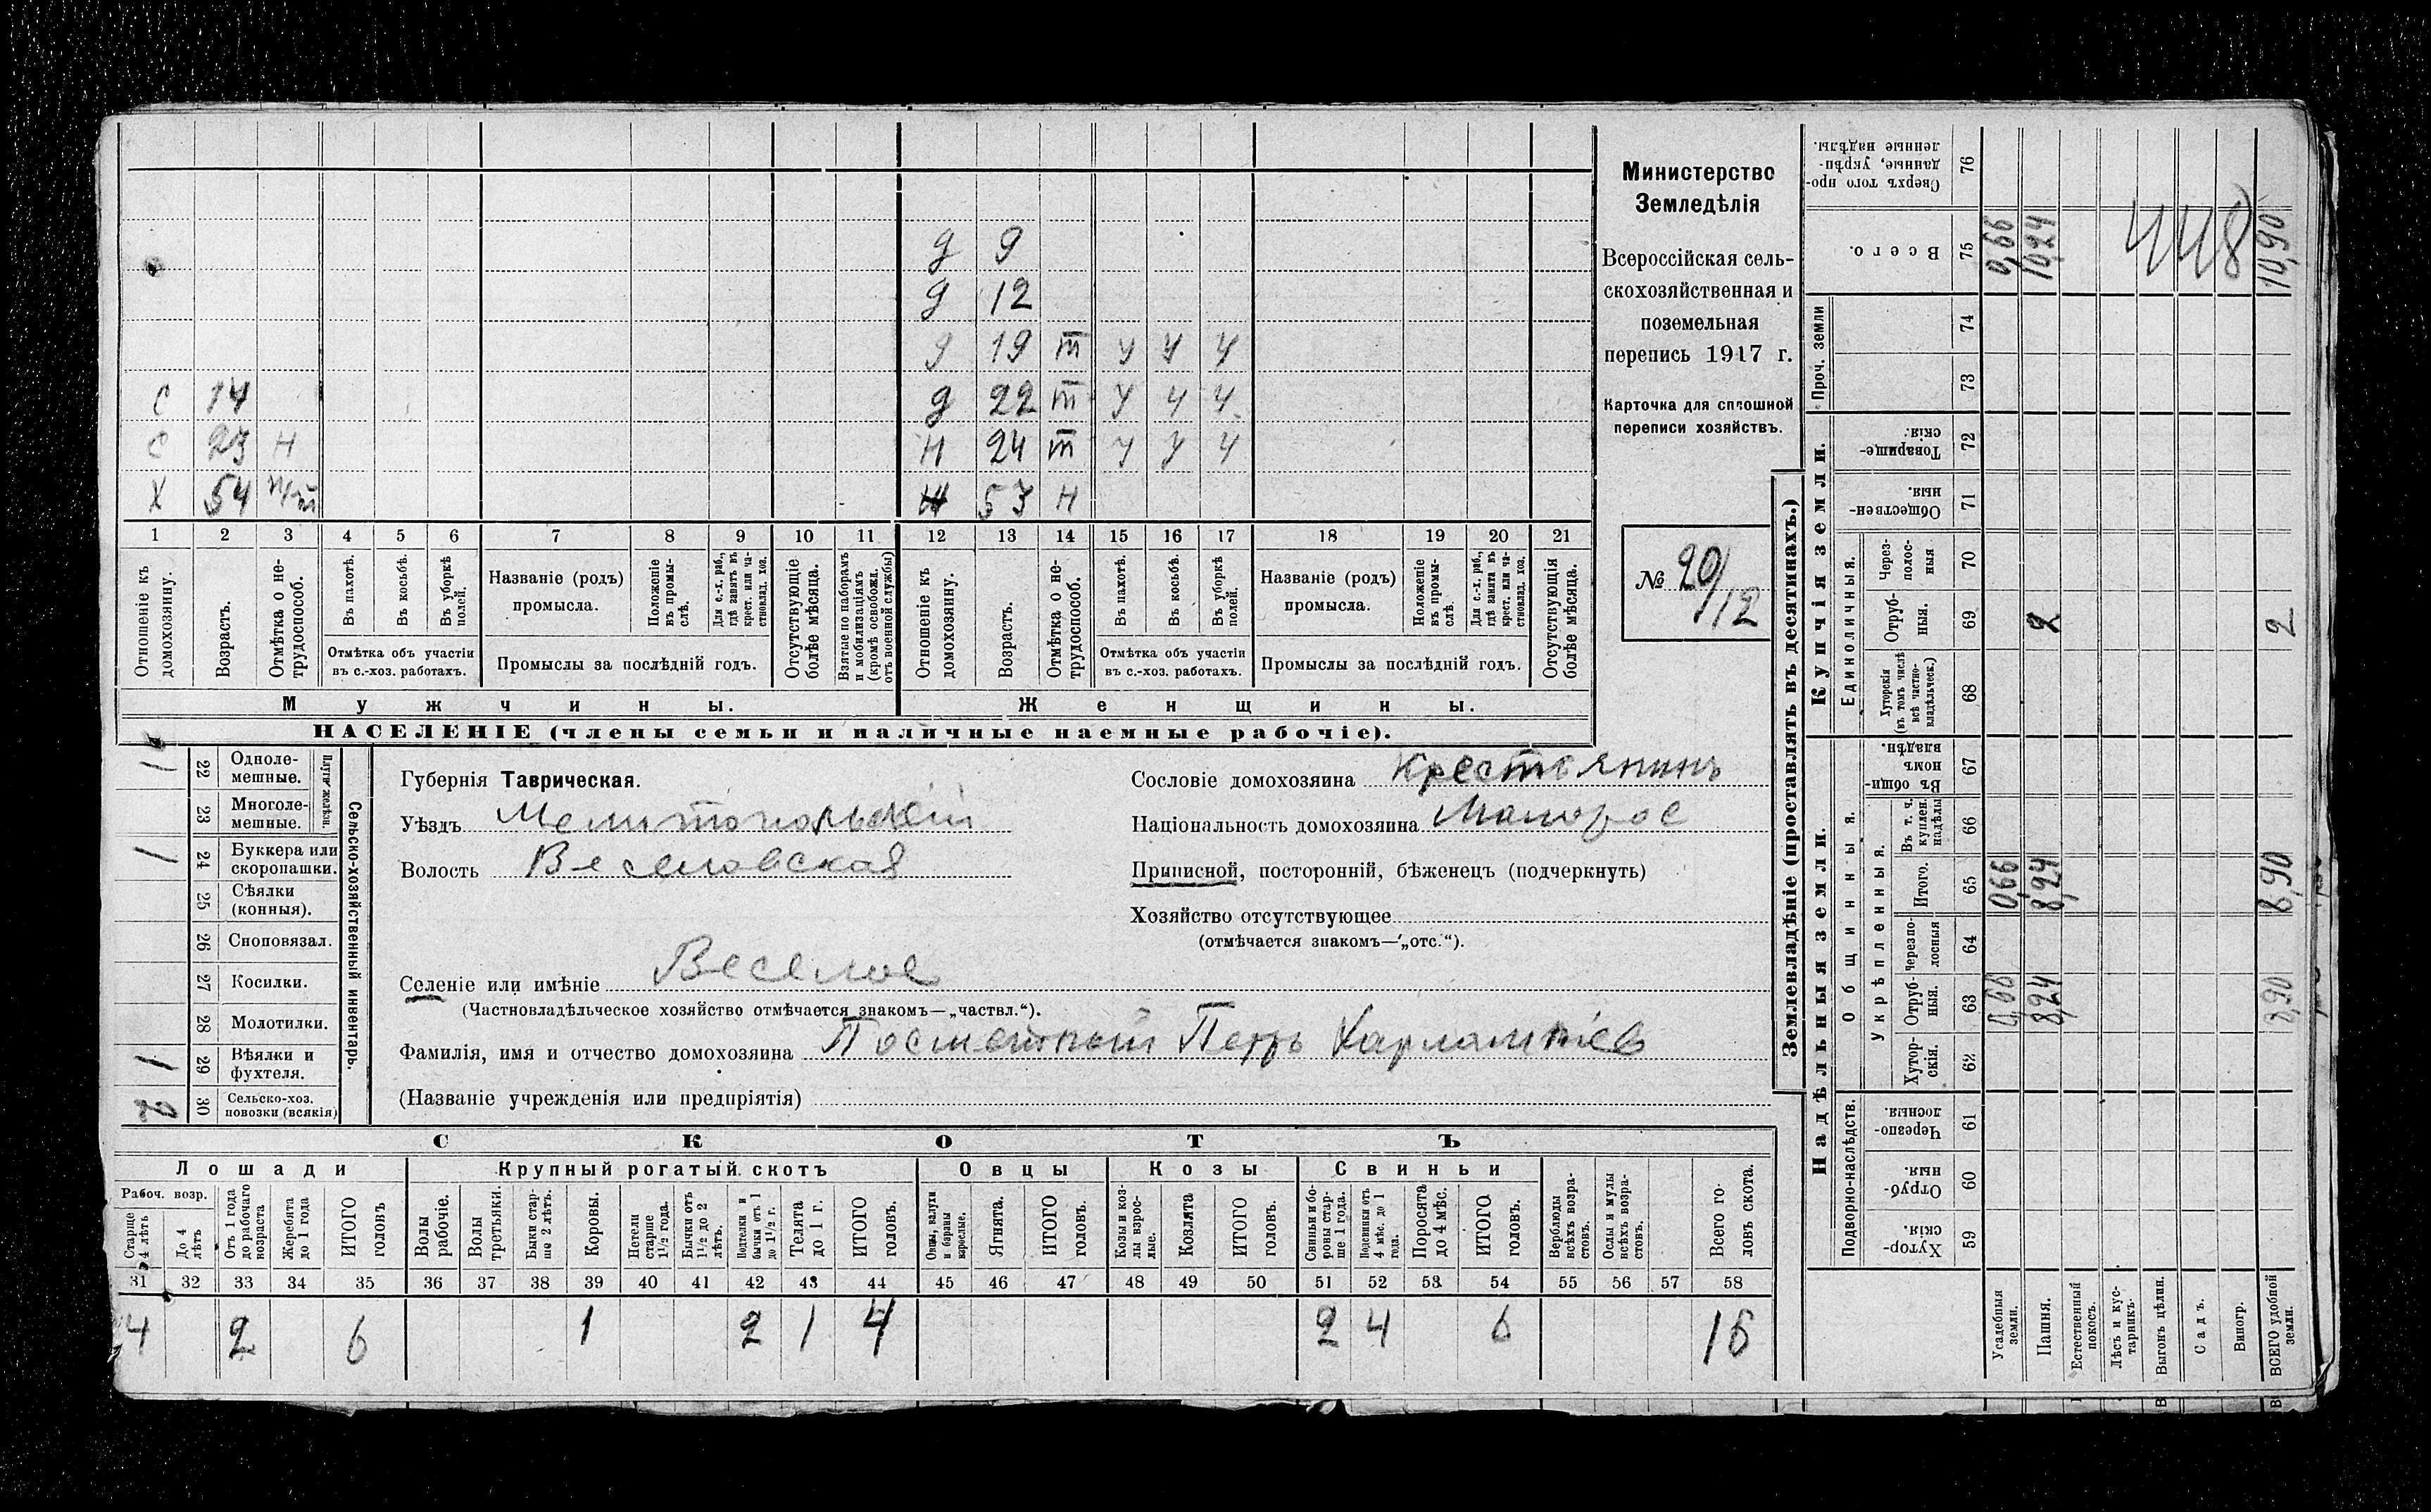 Министерство
Земледѣлія
Всероссійская сель-
скохозяйственная и
поземельная
перепись 1917 г.
Карточка для сплошной
переписи хозяйствъ.
№ 20/12
д 9
д 12
д 19 т у у у
С 14 д 22 т у у у
С 23 Н Н 24 т у у у
Х 54 53 Н
1 2 3 4 5 6 7 8 9 10 11 12 13 14 15 16 17 18 19 20 21
Отношеніе къ домохозяину.
Возрастъ.
Отмѣтка о не-трудоспособ.
Въ пахотѣ.
Въ косьбѣ.
Въ уборкѣ полей.
Отмѣтка объ участіи
въ с.-хоз. работахъ.
Названіе (родъ)
промысла.
Положеніе въ промы-слѣ.
Для с.-х. раб., гдѣ занятъ въ крест. или ча-стновлад. хоз.
Промыслы за послѣдній годъ.
Отсутствующіе болѣе мѣсяца.
Взятые по наборамъ и мобилизаціямъ (кромѣ освобожд. отъ военной службы)
Отношеніе къ домохозяину.
Возрастъ.
Отмѣтка о не-трудоспособ.
Въ пахотѣ.
Въ косьбѣ.
Въ уборкѣ полей.
Отмѣтка объ участіи
въ с.-хоз. работахъ.
Названіе (родъ)
промысла.
Положеніе въ промы-слѣ.
Для с.-х. раб., гдѣ занята въ крест. или ча-стновлад. хоз.
Промыслы за послѣдній годъ.
Отсутствующія болѣе мѣсяца.
Мужчины. Женщины.
НАСЕЛЕНІЕ (члены семьи и наличные наемные рабочіе).
Сельско-хозяйственный инвентарь.
22 Одноле-мешные. 1
23 Многоле-мешные.
24 Буккера или скоропашки. 1
25 Сѣялки (конныя).
26 Сноповязал.
27 Косилки.
28 Молотилки.
29 Вѣялки и фухтеля. 1
30 Сельско-хоз. повозки (всякія) 2
Губернія Таврическая.
Уѣздъ Мелитопольскій
Волость Веселовская
Селеніе или имѣніе Веселое
(Частновладѣльческое хозяйство отмѣчается знакомъ—„частвл.“).
Фамилія, имя и отчество домохозяина Петръ Харлампіев
(Названіе учрежденія или предпріятія)
Сословіе домохозяина Крестьянинъ
Національность домохозяина Малорос
Приписной, посторонній, бѣженецъ (подчеркнуть)
Хозяйство отсутствующее
(отмѣчается знакомъ—„отс.“).
СКОТЪ
Лошади Крупный рогатый скотъ Овцы Козы Свиньи
Рабоч. возр.
Старше 4 лѣтъ
До 4 лѣтъ
Отъ 1 года до рабочаго возраста
Жеребята до 1 года
ИТОГО головъ
Волы рабочіе.
Волы третьяки.
Быки стар-ше 2 лѣтъ.
Коровы.
Нетели старше 1½ года.
Бычки отъ 1½ до 2 лѣтъ.
Подтелки и бычки отъ 1 до 1½ г.
Телята до 1 г.
ИТОГО головъ.
Овцы, валухи и бараны взрослые.
Ягнята.
ИТОГО головъ.
Козы и коз-лы взрос-лые.
Козлята
ИТОГО головъ.
Свиньи и бо-ровы стар-ше 1 года.
Подсвинки отъ 4 мѣс. до 1 года.
Поросята до 4 мѣс.
ИТОГО головъ.
Верблюды всѣхъ возра-стовъ.
Ослы и мулы всѣхъ возра-стовъ.
Всего го-ловъ скота.
31 32 33 34 35 36 37 38 39 40 41 42 43 44 45 46 47 48 49 50 51 52 53 54 55 56 57 58
4 2 6 1 2 1 4 2 4 6 16
Землевладѣніе (проставлять въ десятинахъ.)
Надѣльныя земли. Купчія земли.
Подворно-наслѣдств.
Общинныя.
Укрѣпленныя.
Единоличныя.
Проч. земли
59 Хутор-скія.
60 Отруб-ныя.
61 Черезпо-лосныя.
62 Хутор-скія.
63 Отруб-ныя. 0,66 8,24 8,90
64 Черезпо-лосныя
65 Итого. 0,66 8,24 8,90
66 Въ т. ч. куплен. надѣлы
67 Въ общин-номъ владѣн.
68 Хуторскія (въ томъ числѣ всѣ частно-владѣльческ.)
69 Отруб-ныя. 2 2
70 Через-полос-ныя
71 Обществен-ныя.
72 Товарище-скія.
73
74
75 Всего. 0,66 10,24 10,90
76 Сверхъ того про-данные, укрѣп-ленные надѣлы.
448
Усадебныя земли.
Пашня.
Естественный покосъ.
Лѣсъ и кус-тарникъ.
Выгонъ цѣлин.
Садъ.
Виногр.
ВСЕГО удобной земли.